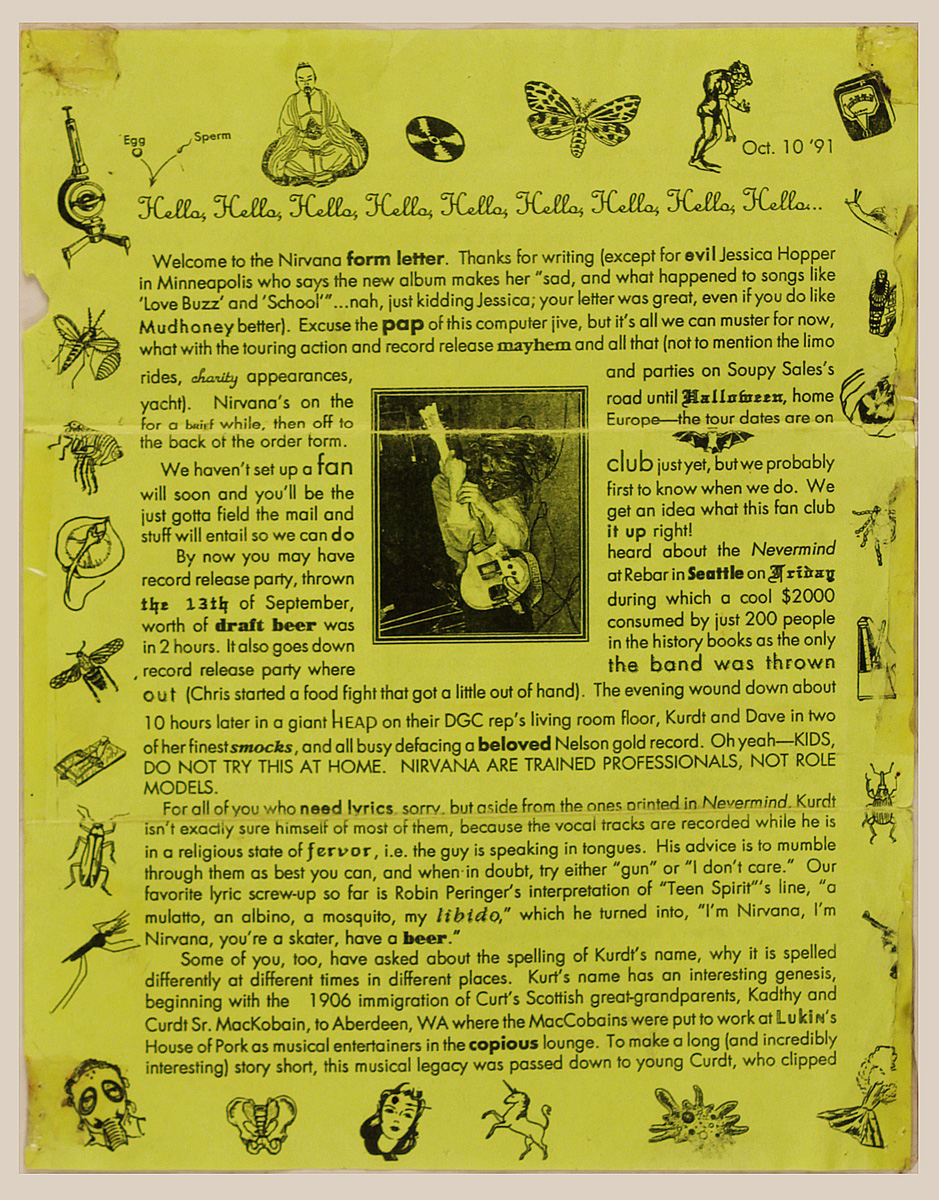 Egg
Sperm
Oct. 10 '91
Hello, Hello, Hello, Hello, Hello, Hello, Hello, Hello, Hello...
Welcome to the Nirvana form letter. Thanks for writing (except for evil Jessica Hopper
in Minneapolis who says the new album makes her "sad, and what happened to songs like
'Love Buzz' and 'School'"...nah, just kidding Jessica; your letter was great, even if you do like
Mudhoney better). Excuse the pap of this computer jive, but it's all we can muster for now,
what with the touring action and record release mayhem and all that (not to mention the limo
rides, charity appearances, and parties on Soupy Sales's
yacht). Nirvana's on the road until Halloween, home
for a brief while, then off to Europe—the tour dates are on
the back of the order form.
We haven't set up a fan club just yet, but we probably
will soon and you'll be the first to know when we do. We
just gotta field the mail and get an idea what this fan club
stuff will entail so we can do it up right!
By now you may have heard about the Nevermind
record release party, thrown at Rebar in Seattle on Friday
the 13th of September, during which a cool $2000
worth of draft beer was consumed by just 200 people
in 2 hours. It also goes down in the history books as the only
record release party where the band was thrown
out (Chris started a food fight that got a little out of hand). The evening wound down about
10 hours later in a giant HEAP on their DGC rep's living room floor, Kurdt and Dave in two
of her finest smocks, and all busy defacing a beloved Nelson gold record. Oh yeah—KIDS,
DO NOT TRY THIS AT HOME. NIRVANA ARE TRAINED PROFESSIONALS, NOT ROLE
MODELS.
For all of you who need lyrics, sorry, but aside from the ones printed in Nevermind, Kurdt
isn't exactly sure himself of most of them, because the vocal tracks are recorded while he is
in a religious state of fervor, i.e. the guy is speaking in tongues. His advice is to mumble
through them as best you can, and when in doubt, try either "gun" or "I don't care." Our
favorite lyric screw-up so far is Robin Peringer's interpretation of "Teen Spirit"'s line, "a
mulatto, an albino, a mosquito, my libido," which he turned into, "I'm Nirvana, I'm
Nirvana, you're a skater, have a beer."
Some of you, too, have asked about the spelling of Kurdt's name, why it is spelled
differently at different times in different places. Kurt's name has an interesting genesis,
beginning with the 1906 immigration of Curt's Scottish great-grandparents, Kadthy and
Curdt Sr. MacKobain, to Aberdeen, WA where the MacCobains were put to work at Lukin's
House of Pork as musical entertainers in the copious lounge. To make a long (and incredibly
interesting) story short, this musical legacy was passed down to young Curdt, who clipped